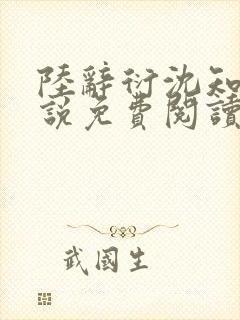 陸辭衍沈知
說免費閱讀
武國生